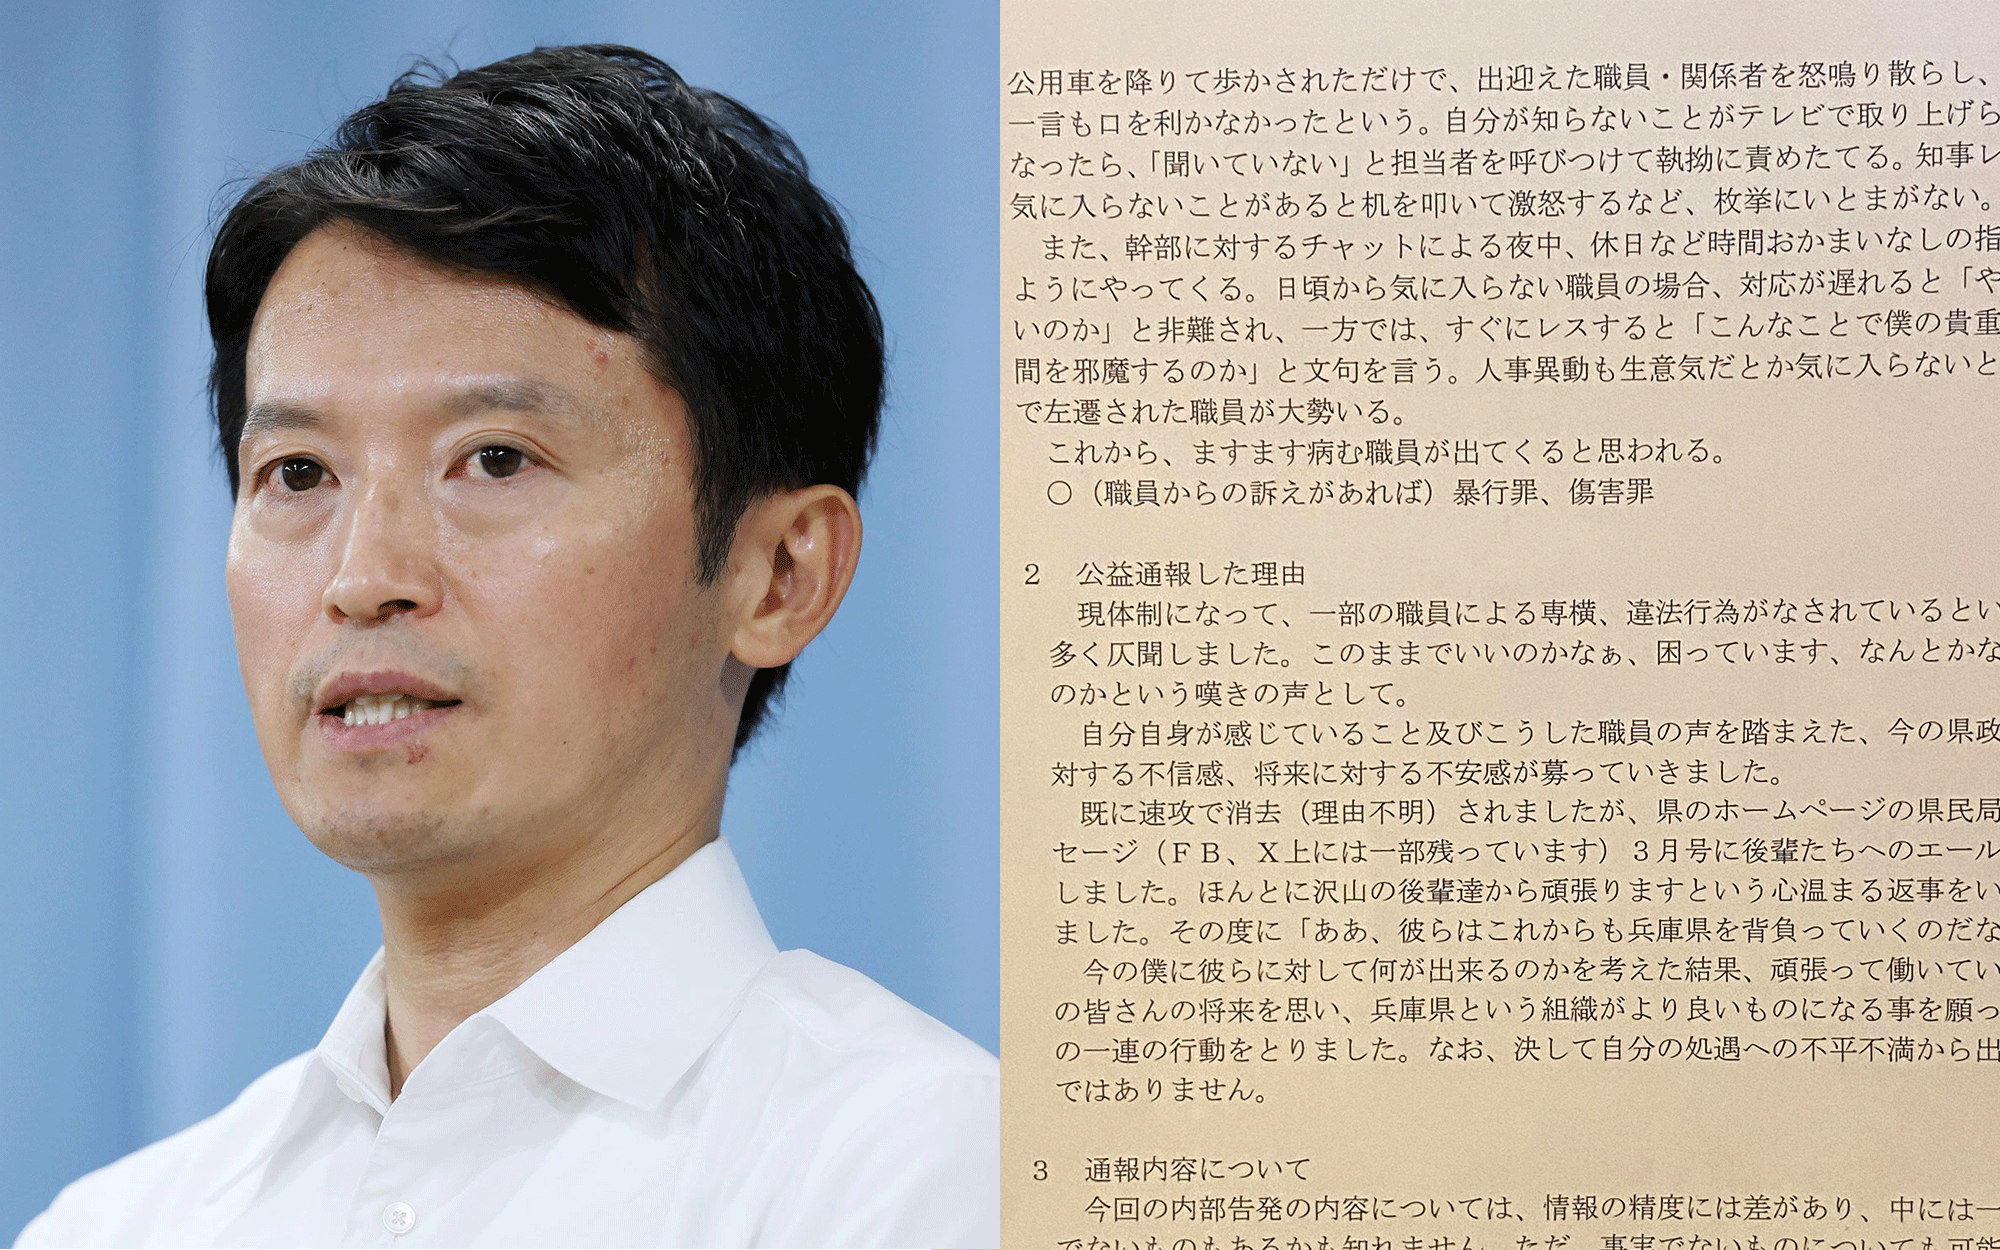 公用車を降りて歩かされただけで、出迎えた職員・関係者を怒鳴り散らし、
一言も口を利かなかったという。自分が知らないことがテレビで取り上げら
なったら、「聞いていない」と担当者を呼びつけて執拗に責めたてる。知事レ
気に入らないことがあると机を叩いて激怒するなど、枚挙にいとまがない。
また、幹部に対するチャットによる夜中、休日など時間おかまいなしの指
ようにやってくる。日頃から気に入らない職員の場合、対応が遅れると「や
いのか」と非難され、一方では、すぐにレスすると「こんなことで僕の貴重
間を邪魔するのか」と文句を言う。人事異動も生意気だとか気に入らないと
で左遷された職員が大勢いる。
これから、ますます病む職員が出てくると思われる。
○（職員からの訴えがあれば）暴行罪、傷害罪
2　公益通報した理由
現体制になって、一部の職員による専横、違法行為がなされているとい
多く仄聞しました。このままでいいのかなぁ、困っています、なんとかな
のかという嘆きの声として。
自分自身が感じていること及びこうした職員の声を踏まえた、今の県政
対する不信感、将来に対する不安感が募っていきました。
既に速攻で消去（理由不明）されましたが、県のホームページの県民局
セージ（ＦＢ、Ｘ上には一部残っています）３月号に後輩たちへのエール
しました。ほんとに沢山の後輩達から頑張りますという心温まる返事をい
ました。その度に「ああ、彼らはこれからも兵庫県を背負っていくのだな
今の僕に彼らに対して何が出来るのかを考えた結果、頑張って働いてい
の皆さんの将来を思い、兵庫県という組織がより良いものになる事を願っ
の一連の行動をとりました。なお、決して自分の処遇への不平不満から出
ではありません。
3　通報内容について
今回の内部告発の内容については、情報の精度には差があり、中には一
でないものもあるかも知れません。ただ、事実でないものについても可能